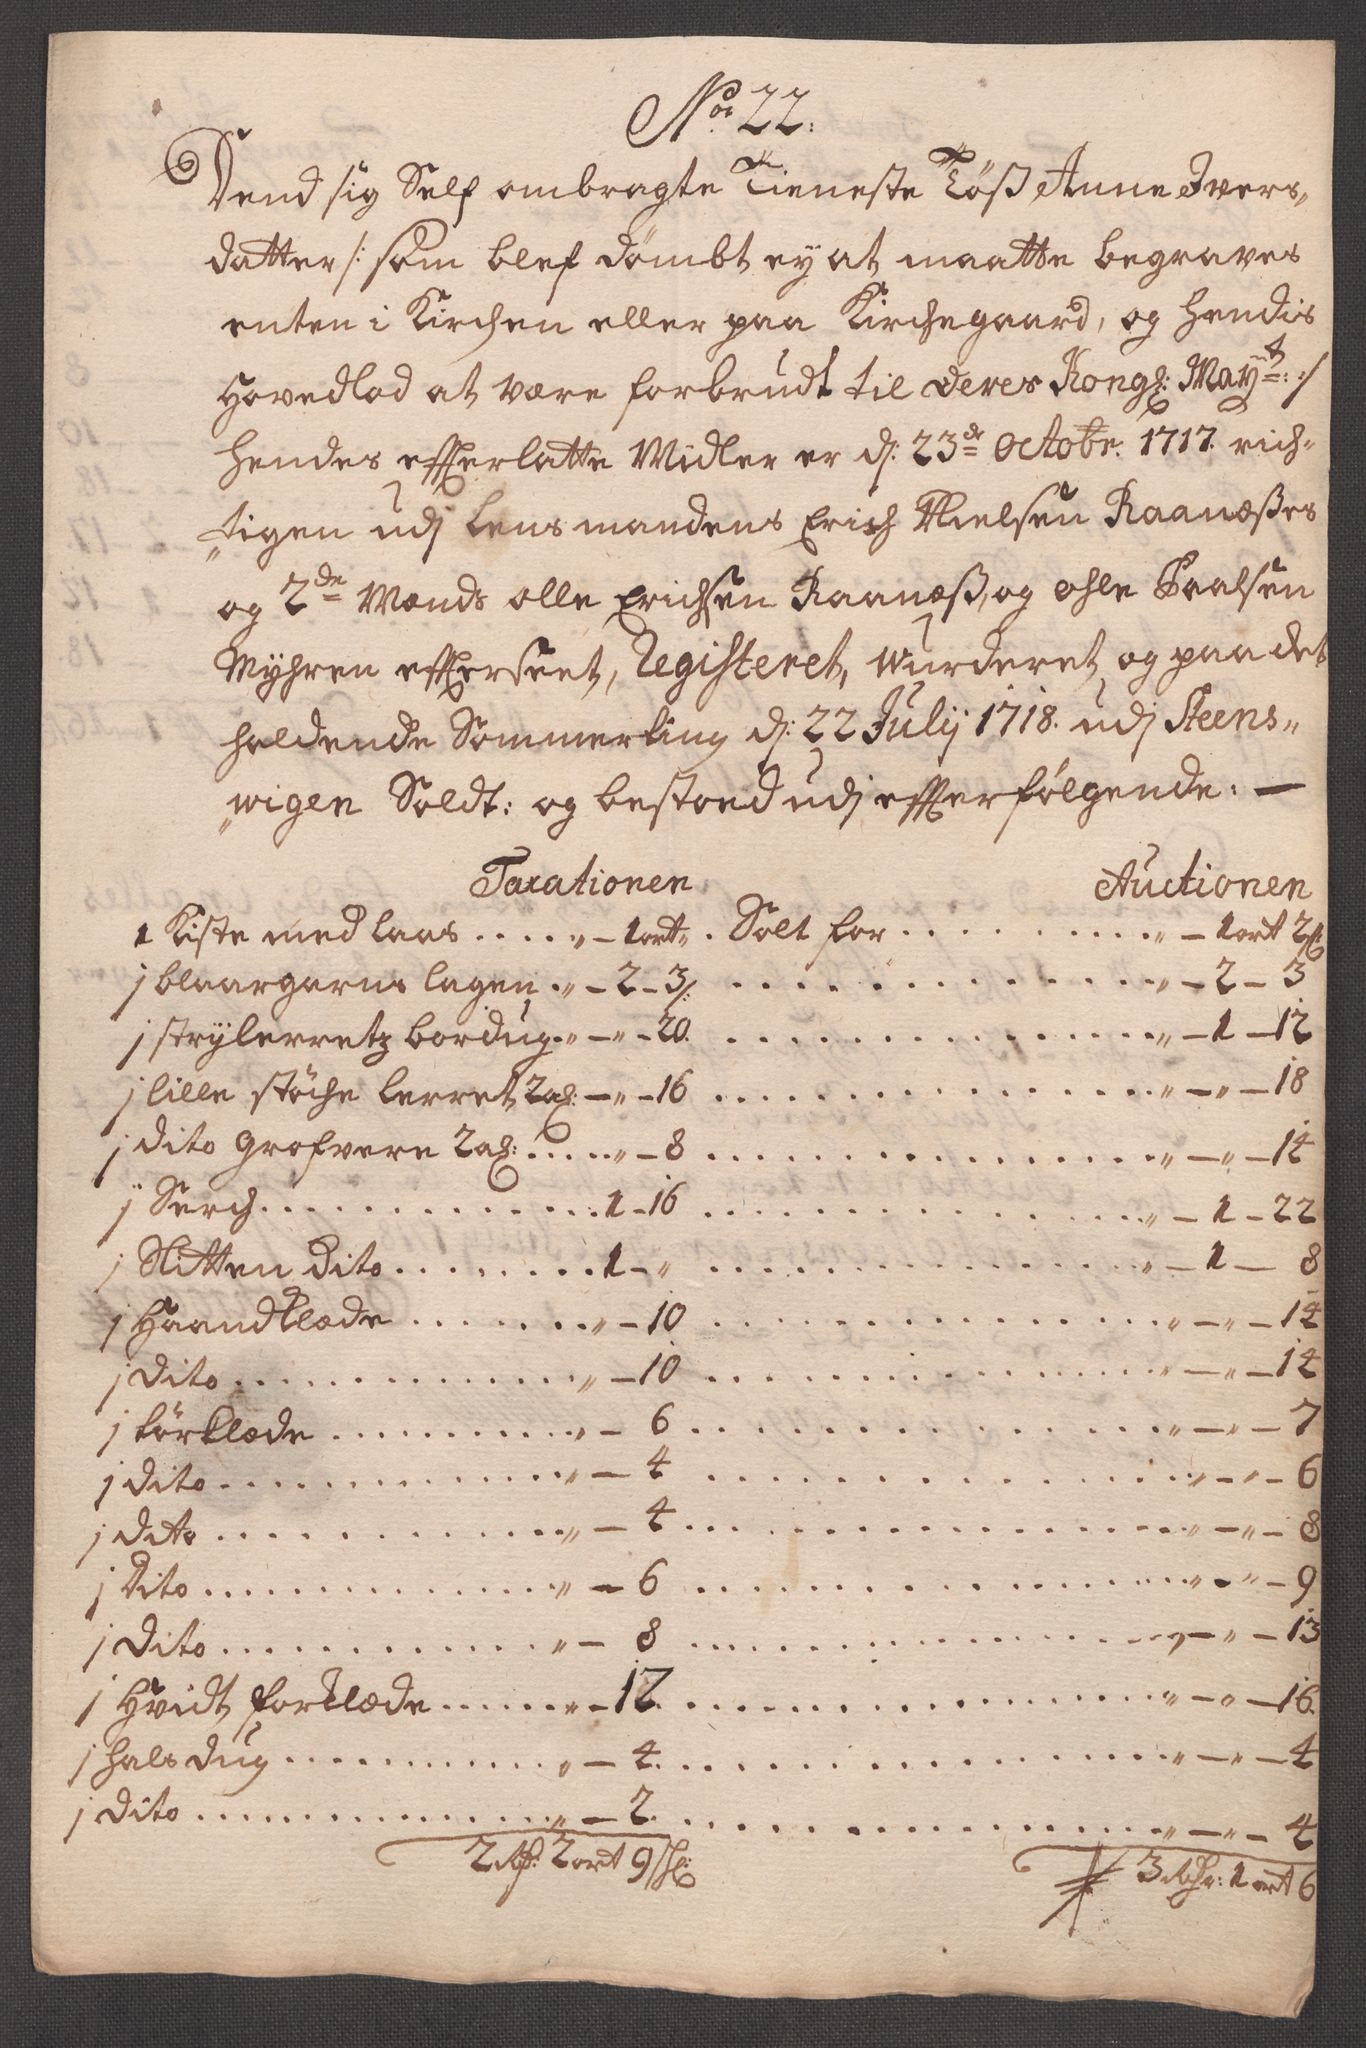 No 22.
Dend sig Self ombragte Tieneste Töß Anne Ivers„
datter /: som blef dömbt ey at maatte begraves
enten i Kirchen eller paa Kirchegaard, og hendis
Hovedlod at være forbrudt til Deres Kongl: Mayt: :/
hendes efterlatte Midler er d: 23de Octobr: 1717. rich-
„tigen udj Lensmandens Erich Nielsen Raanæßes
og 2de Mænds olle Erichsen Raanæß, og ohle Paalsen
Myhren efterseet, Registeret, Wurderet, og paa det
holdende Sommerting d: 22 Julij 1718. udj Steens„
„wigen Soldt: og bestoed udj efterfølgende. —
Taxationen Auctionen
1 Kiste med laas . . . . „ – 1 ort „ . Solt for . . . . . . . . „ – 1 ort 2 ß
j blaargarns lagen . „ – 2 – 3 /: . . . . . . . . „ – 2 – 3
j strylerretz bordug . „ – „ – 20. . . . . . . . . „ – 1 – 12
j lille støche lerret 2 al: – „ – 16 . . . . . . . . „ – „ – 18
j dito grofvere 2 al: . . . . „ – 8 . . . . . . . . „ – „ – 14
j Serch . . . . . . . . 1 – 16 . . . . . . . . „ – 1 – 22
j Slitten dito . . . . . . . . 1 – „ . . . . . . . . „ – 1 – 8
j Haandklæde . . . . . . . „ – 10 . . . . . . . . „ – „ – 14
j dito . . . . . . . . „ – 10 . . . . . . . . „ – „ – 14
j törklæde . . . . . . . . „ – 6 . . . . . . . . „ – „ – 7
j dito . . . . . . . . „ – 4 . . . . . . . . „ – „ – 6
j dito . . . . . . . . „ – 4 . . . . . . . . „ – „ – 8
j Dito . . . . . . . . „ – 6 . . . . . . . . „ – „ – 9
j Dito . . . . . . . . „ – 8 . . . . . . . . „ – „ – 13
j Hvidt forklæde . . . . . „ – 12 . . . . . . . . „ – „ – 16.
j halsdug . . . . . . . . „ – 4 . . . . . . . . „ – „ – 4
j Dito . . . . . . . . „ – 2 . . . . . . . . „ – „ – 4
2 Rdr: 2 ort 9 ß: 3 Rdr: 1 ort 6